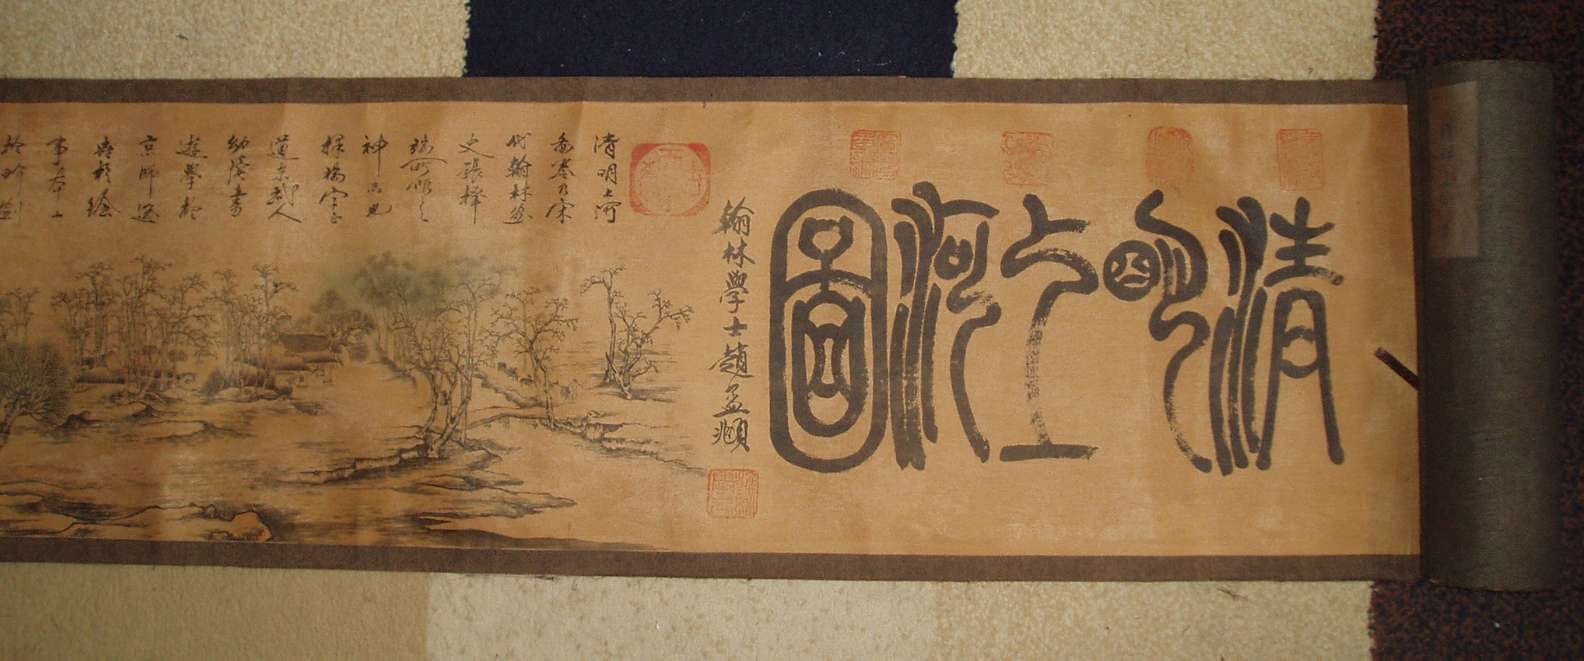 清明上河圖
翰林學士趙孟頫
清明上河
圖卷乃宋
代翰林畫
史張擇
端所作之
神品也
擇端字正
道東武人
幼讀書
遊學於
京師後
習繪
事本工
於